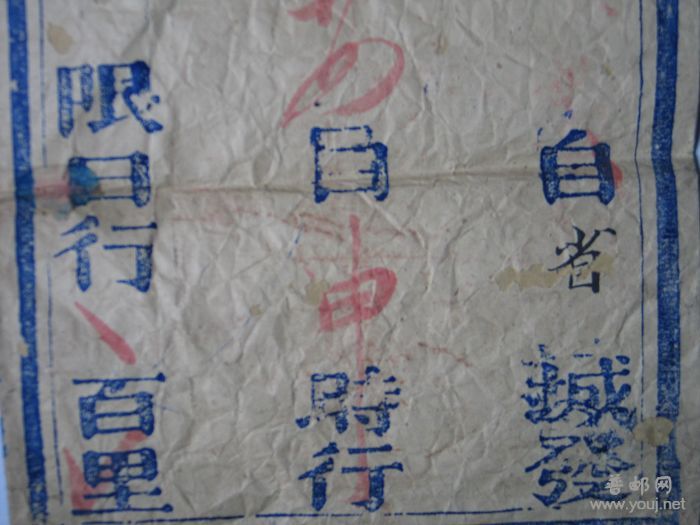 自省緘發
日申時行
限日行百里
www.youj.net